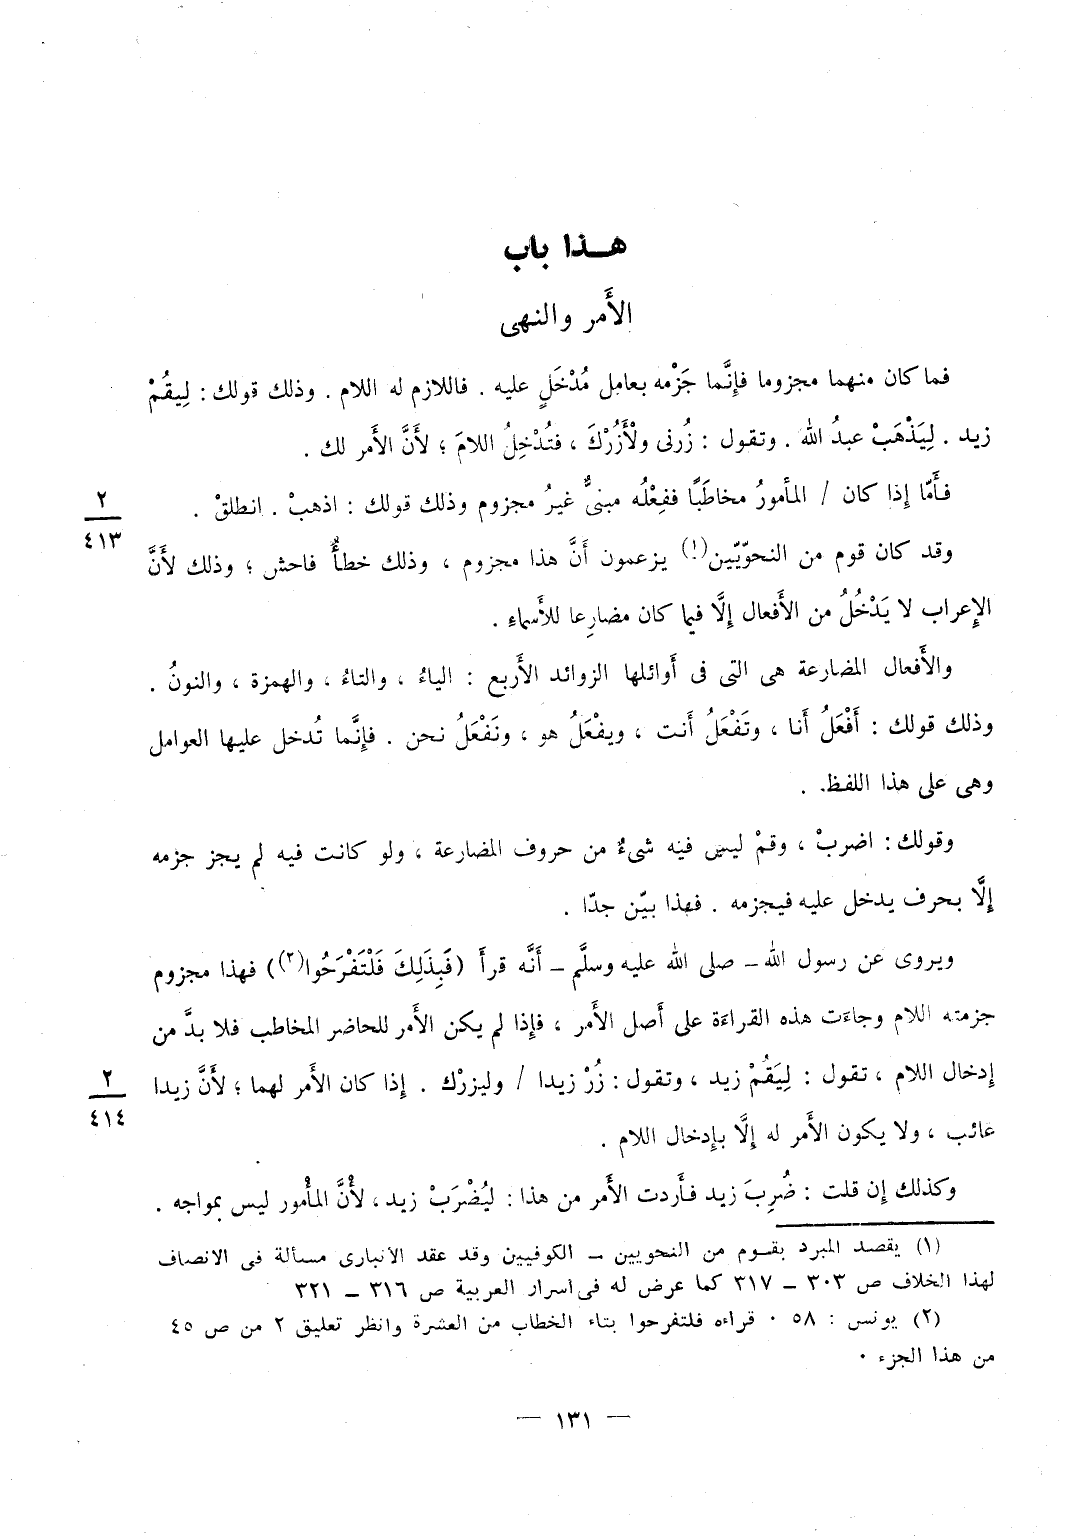 هـذا باب
الأَمر والنهى
فما كان منهما مجزوما فإِنَّما جَزْمه بعامِل مُدْخَلٍ عليه . فاللازم له اللام . وذلك قولك : لِيقُمْ
زيد . لِيَذْهَبْ عبدُ الله . وتقول : زُرنى ولْأَزُرْكَ ، فتُدْخِلُ اللامَ ؛ لأَنَّ الأَمر لك .
فأَمّا إِذا كان / المأمورُ مخاطَبًا ففِعْلُه مبنىٌّ غيرُ مجزوم وذلك قولك : اذهبْ . انطلقْ .
٢
٤١٣
وقد كان قوم من النحوّيّين(١) يزعمون أَنَّ هذا مجزوم ، وذلك خطأٌ فاحش ؛ وذلك لأَنَّ
الإِعراب لا يَدْخُلُ من الأَفعال إِلَّا فيما كان مضارِعا للأَسماءِ .
والأَفعال المضارعة هى التى فى أَوائلها الزوائد الأَربع : الياءُ ، والتاءُ ، والهمزة ، والنونُ .
وذلك قولك : أَفْعَلُ أَنا ، وتَفْعَلُ أَنت ، ويفْعَلُ هو ، ونَفْعَلُ نحن . فإِنَّما تُدخل عليها العوامل
وهى على هذا اللفظ .
وقولك : اضربْ ، وقمْ ليس فيه شىءٌ من حروف المضارعة ، ولو كانت فيه لم يجز جزمه
إِلَّا بحرف يدخل عليه فيجزمه . فهذا بيّن جدّا .
ويروى عن رسول الله ـ صلى الله عليه وسلَّم ـ أَنَّه قرأَ (فَبِذَلِكَ فَلْتَفْرَحُوا(٢)) فهذا مجزوم
جزمته اللام وجاءَت هذه القراءَة على أَصل الأَمر ، فإِذا لم يكن الأَمر للحاضر المخاطب فلا بدَّ من
إِدخال اللام ، تقول : لِيَقُمْ زيد ، وتقول : زُرْ زيدا / وليزرْك . إِذا كان الأَمر لهما ؛ لأَنَّ زيدا
٢
٤١٤
غائب ، ولا يكون الأَمر له إِلَّا بإِدخال اللام .
وكذلك إِن قلت : ضُرِبَ زيد فأَردت الأَمر من هذا : ليُضْرَبْ زيد ، لأَنَّ المأْمور ليس بمواجه .
(١) يقصد المبرد بقـوم من النحويين ـ الكوفيين وقد عقد الانبارى مسألة فى الانصاف
لهذا الخلاف ص ٣٠٣ ـ ٣١٧ كما عرض له فى اسرار العربية ص ٣١٦ ـ ٣٢١
(٢) يونس : ٥٨ ٠ قراءه فلتفرحوا بتاء الخطاب من العشرة وانظر تعليق ٢ من ص ٤٥
من هذا الجزء ٠
— ١٣١ —